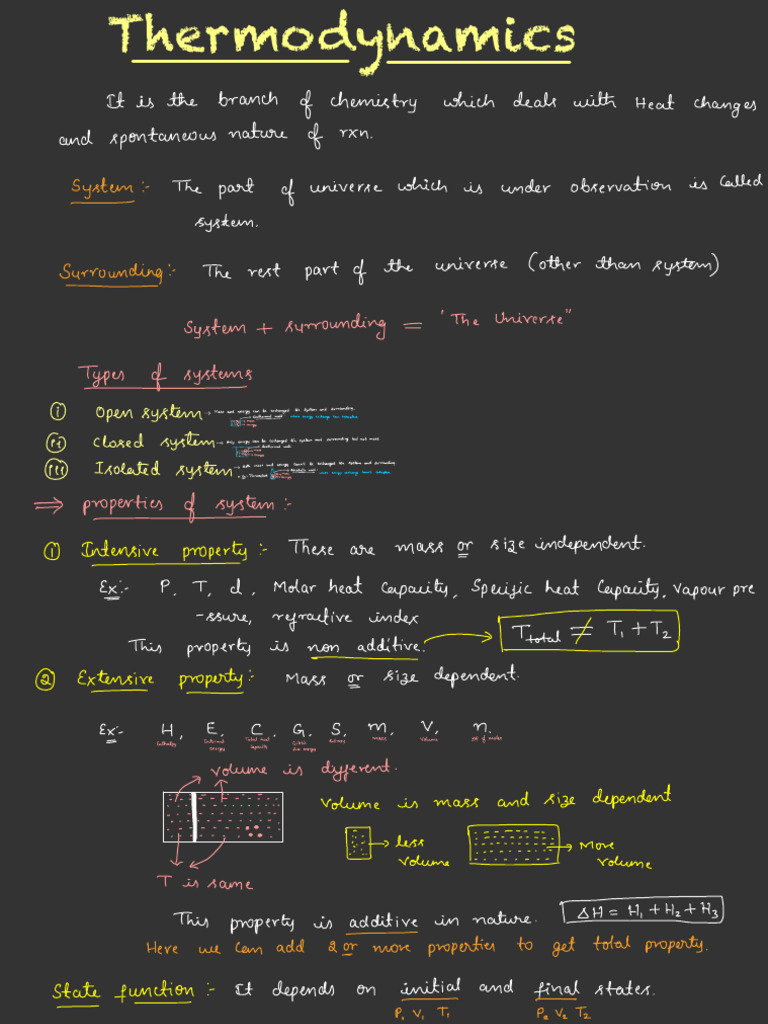 Thermodynamics
It is the branch of chemistry which deals with Heat changes
and spontaneous nature of rxn.
System :- The part of universe which is under observation is called
system.
Surrounding :- The rest part of the universe (other than system)
System + surrounding = 'The Universe"
Types of systems
(i) Open system → Mass and energy can be exchanged b/w system and surrounding.
(ii) Closed system → only energy can be exchanged b/w system and surrounding but not mass.
(iii) Isolated system → Both mass and energy cannot be exchanged b/w system and surrounding.
⇒ properties of system :-
① Intensive property :- These are mass or size independent.
Ex :- P, T, d, Molar heat Capacity, Specific heat Capacity, vapour pre
-ssure, refractive index
This property is non additive. → T total ≠ T1 + T2
② Extensive property :- Mass or size dependent.
Ex :- H, E, C, G, S, m, V, n.
Enthalpy Internal energy Total heat capacity Gibbs free energy Entropy mass Volume no. of moles
volume is different.
Volume is mass and size dependent
→ less volume
→ More volume
T is same
This property is additive in nature. ΔH = H1 + H2 + H3
Here we can add 2 or more properties to get total property.
State function :- It depends on initial and final states.
P, V1 T1 P2 V2 T2